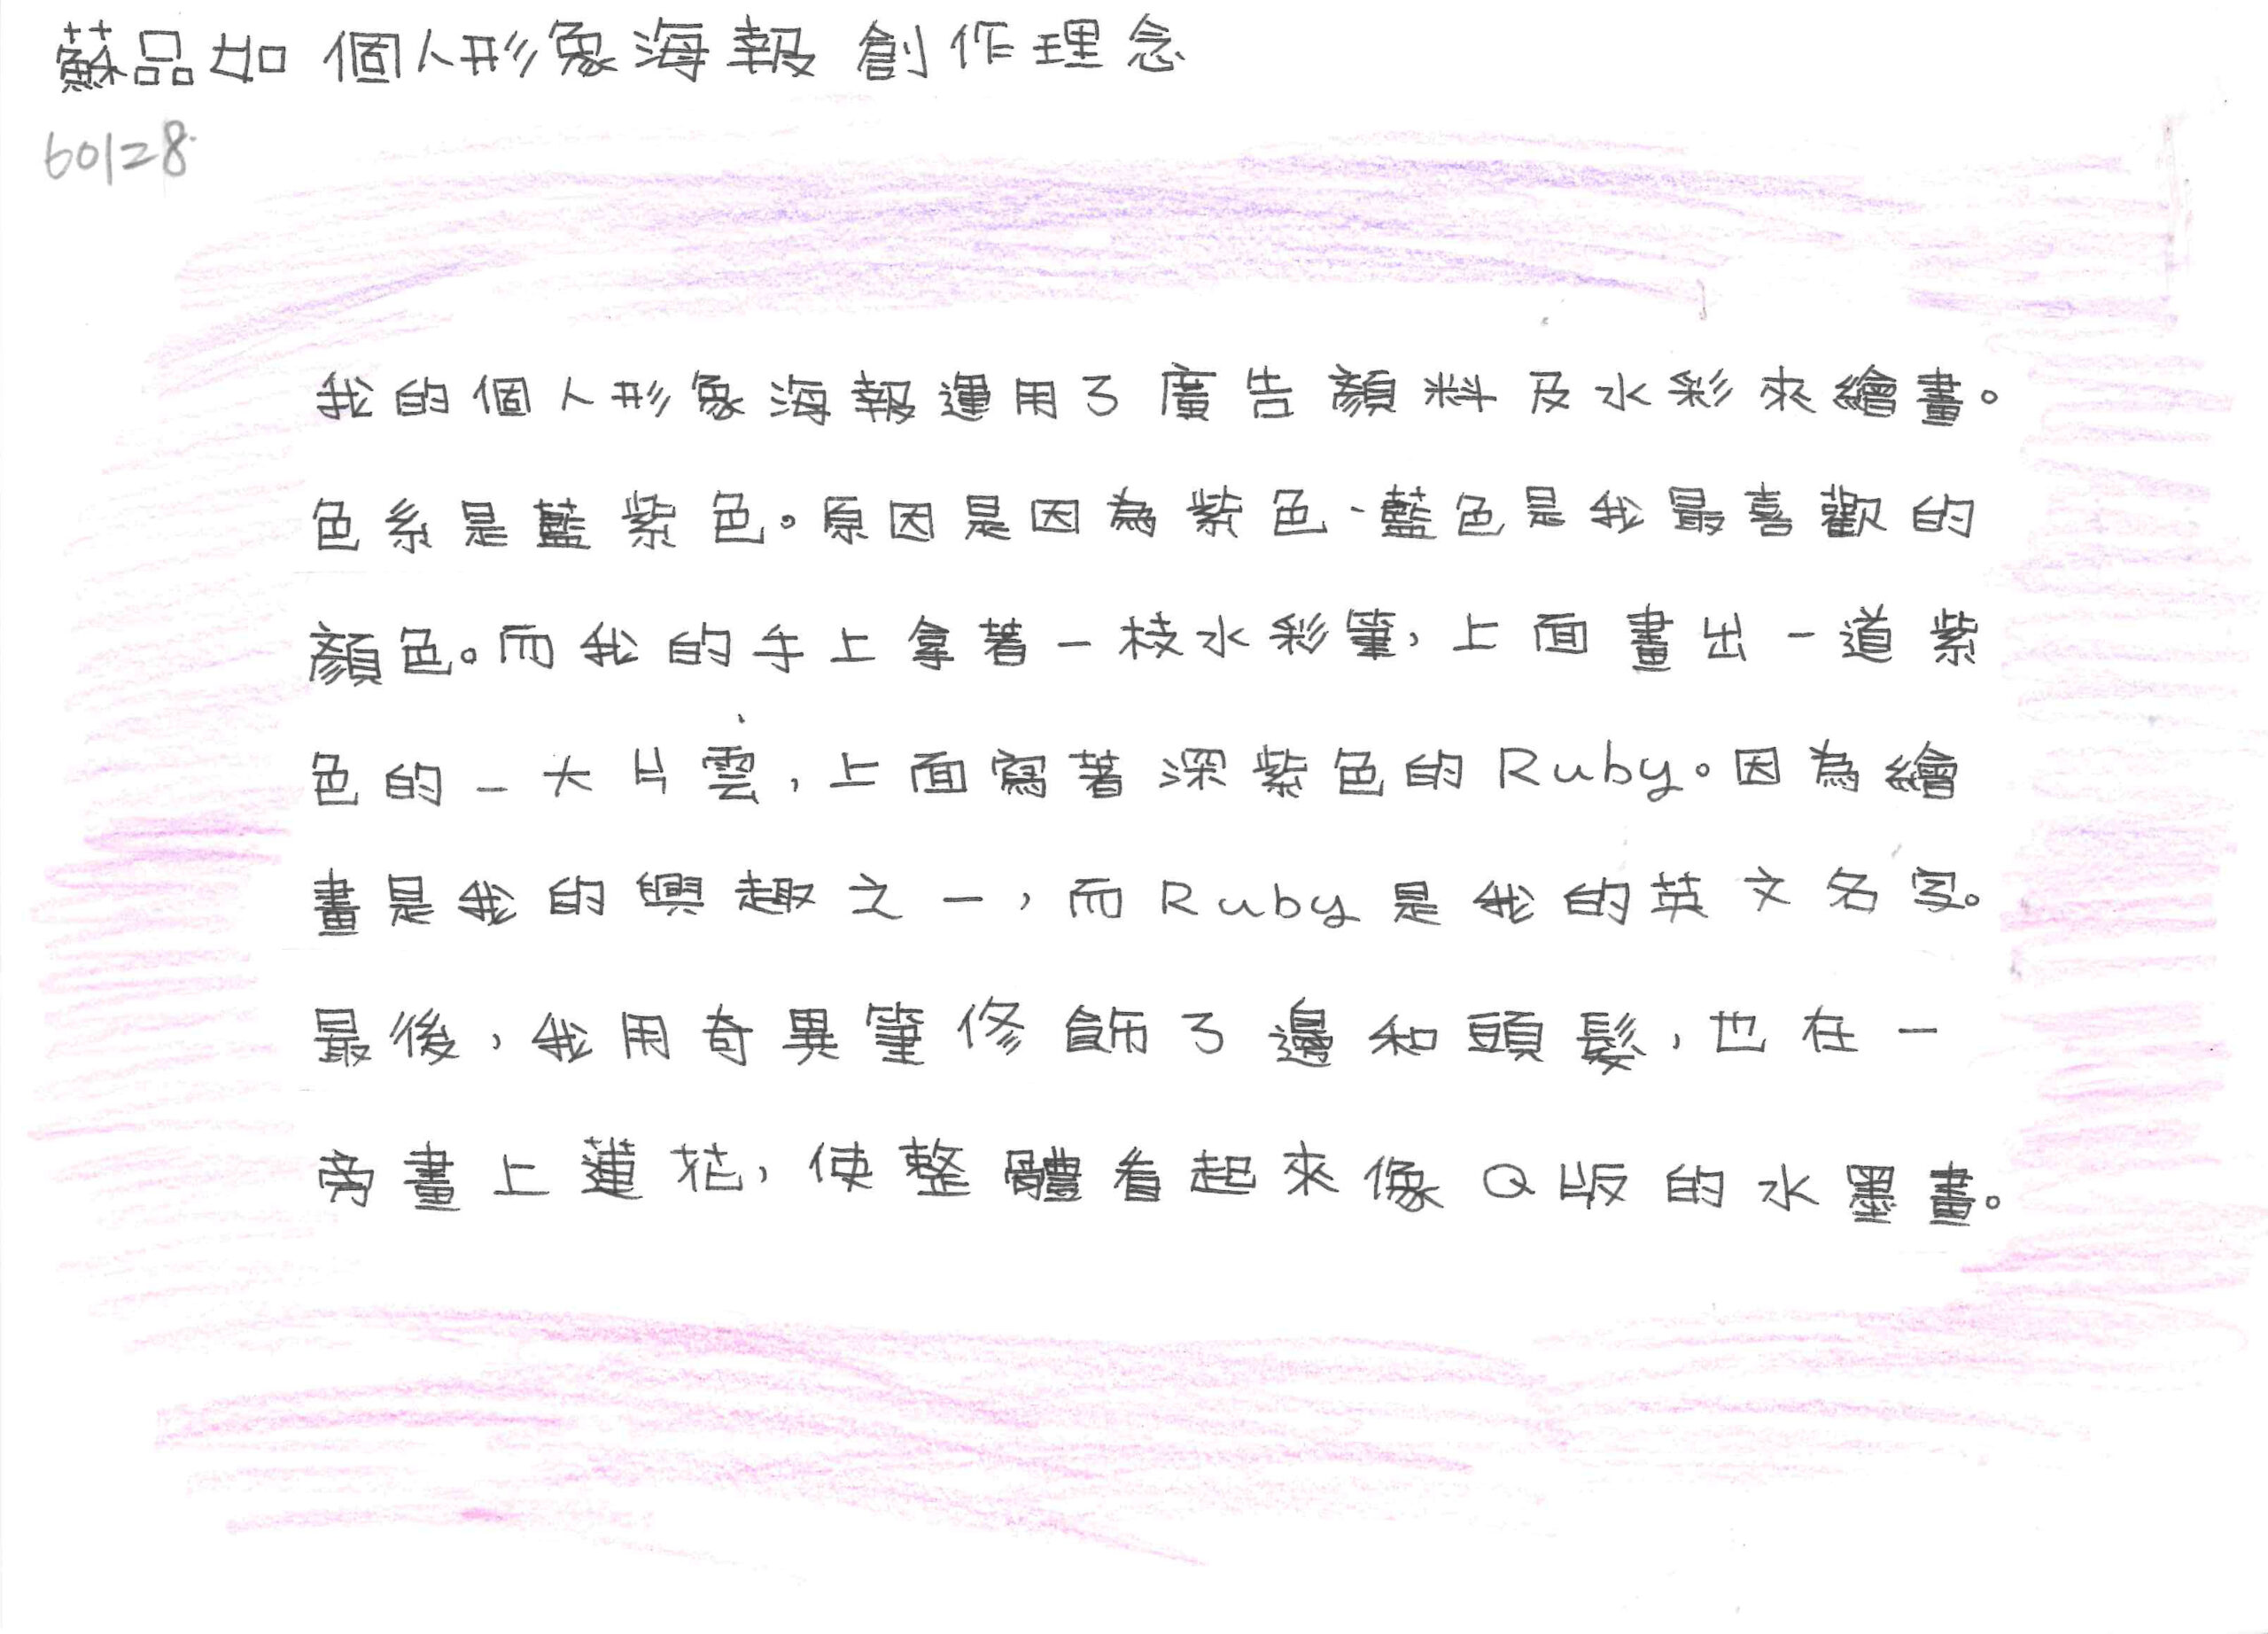 蘇品如 個人形象海報 創作理念
60128
我的個人形象海報運用了廣告顏料及水彩來繪畫。
色系是藍紫色。原因是因為紫色、藍色是我最喜歡的
顏色。而我的手上拿著一枝水彩筆，上面畫出一道紫
色的一大片雲，上面寫著深紫色的Ruby。因為繪
畫是我的興趣之一，而Ruby是我的英文名字。
最後，我用奇異筆修飾了邊和頭髮，也在一
旁畫上蓮花，使整體看起來像Q版的水墨畫。